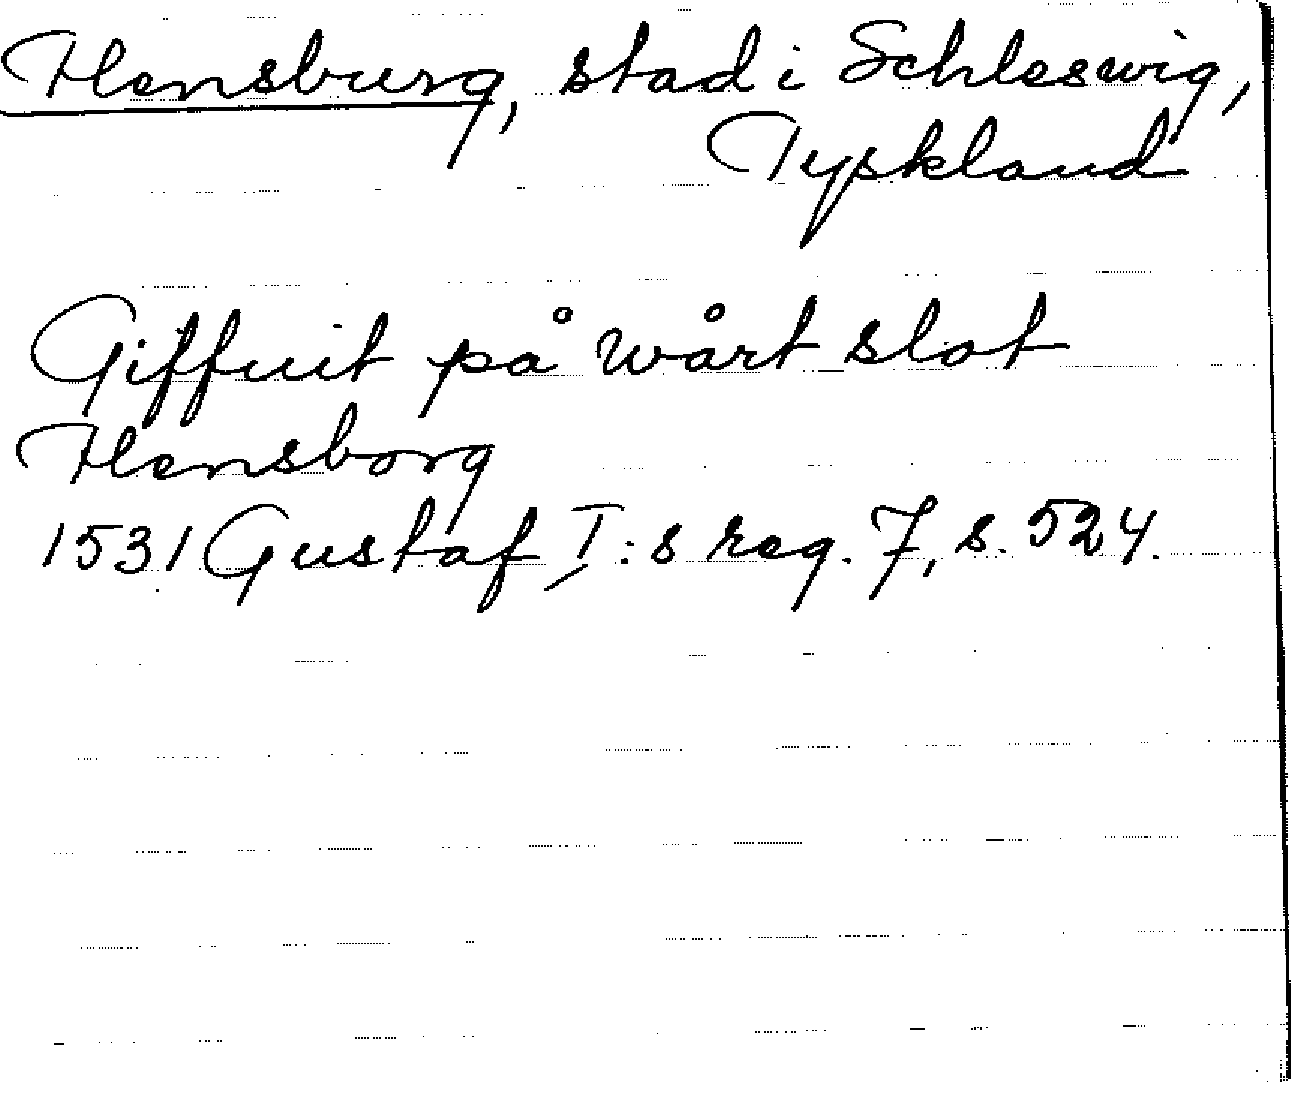 Flensburg, stad i Schleswig,
Tyskland
Giffuit på wårt slot
Flensborg
1531 Gustaf I:s reg. 7, s. 524.